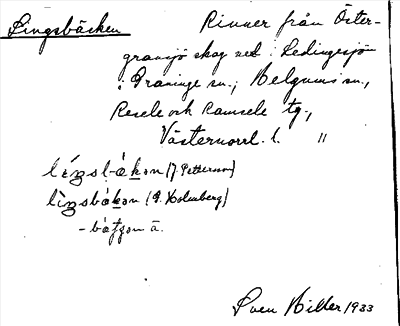 Lingsbäcken Rinner från Öster-
graninge skog ned i Ledingesjön
i Graninge sn.; Helgums sn.,
Resele och Ramsele tg.,
Västernorrl. l. "
língsb-äkən (J. Petterson)
lìngsbäkən (P. Holmberg)
Sven Hiller 1933